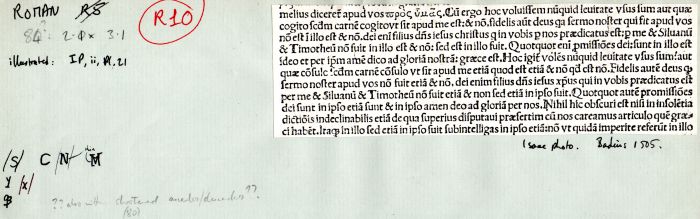 ROMAN R5
84? 2·φ× 3·1
illustrated: IP, ii, 21
R10
melius diceret apud vos προς ὑμᾶς. Cū ergo hoc voluissem nūquid leuitate vsus sum aut quæ
cogito secdm carnē cogitovt sit apud me est; & nō. fidelis autē deus qa sermo noster qui fit apud vos
nō est illi est & nō. dei eni filius dn̄s iesus christus q in vobis p nos prædicatus est: p me & Siluanū
& Timotheū nō fuit in illo est & nō: sed est in illo fuit. Quotquot eni p̄missiōes dei: sunt in illo est
ideo et per ip̄m amē dico ad gloriā nostrā: græce est. Hoc igit volēs nūquid leuitate vsus sum? aut
quæ cōsulo: secdm carnē cōsulo vt sit apud me etiā quod est etiā & nō qd est nō. Fidelis autē deus q
sermo noster apud vos nō fuit etiā & nō. dei enim filius dn̄s iesus xp̄us qui in vobis prædicatus est
per me & Siluanū & Timotheū nō fuit etiā & non sed etiā in ipso fuit. Quotquot autē promissiōes
dei sunt in ipso etiā sunt & in ipso amen deo ad gloriā per nos. Nihil hic obscuri est nisi in insolētia
dictiōis indeclinabilis etiā de qua superius disputaui præsertim cū nos careamus articulo quē græ
ci habēt. Itaq in illo sed etiā in ipso fuit subintelligas in ipso etiā: nō vt quidā imperite referūt in illo
Isaac photo. Badius 1505.
/S/ C N M
y /x/
??also with shortened ascender/descender??
(80)